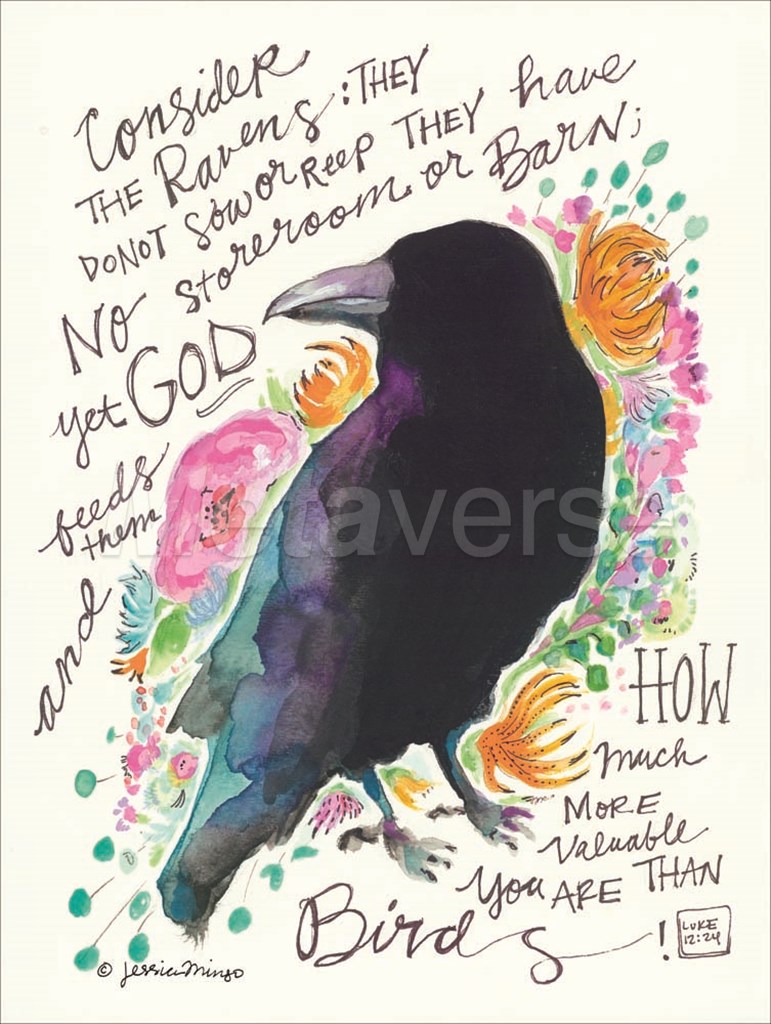 Consider
THE Ravens: THEY
DO NOT SOW OR Reep THEY have
NO storeroom or BARN;
yet GOD
feeds
them
and
HOW
much
MORE
Valuable
you ARE THAN
Birds!
LUKE
12:24
© Jessica Mingo
Metaverse